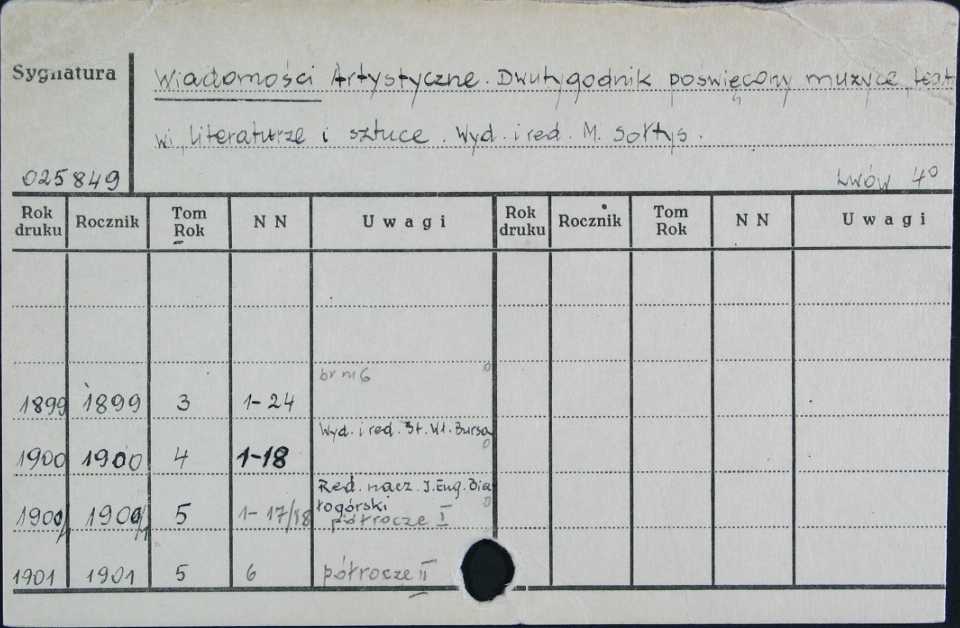 Sygnatura
Wiadomości Artystyczne. Dwutygodnik poswięcony muzyce, teat
wi, literaturze i sztuce. Wyd. i red. M. Sołtys.
025849
Lwów 4°
Rok druku Rocznik Tom Rok NN Uwagi Rok druku Rocznik Tom Rok NN Uwagi
br nr 6
1899 1899 3 1-24
Wyd. i red. St. Wł. Bursa
1900 1900 4 1-18
Red. nacz. J. Eug. Bia
łogórski
1900/1 1900/1 5 1-17/18 półrocze I
1901 1901 5 6 półrocze II